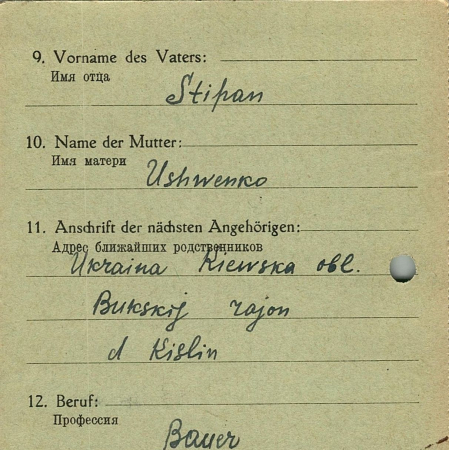 9. Vorname des Vaters:
Имя отца
Stipan
10. Name der Mutter:
Имя матери
Ushwenko
11. Anschrift der nächsten Angehörigen:
Адрес ближайших родственников
Ukraina Kiewska obl.
Bukskij rajon
d Kislin
12. Beruf:
Профессия
Bauer